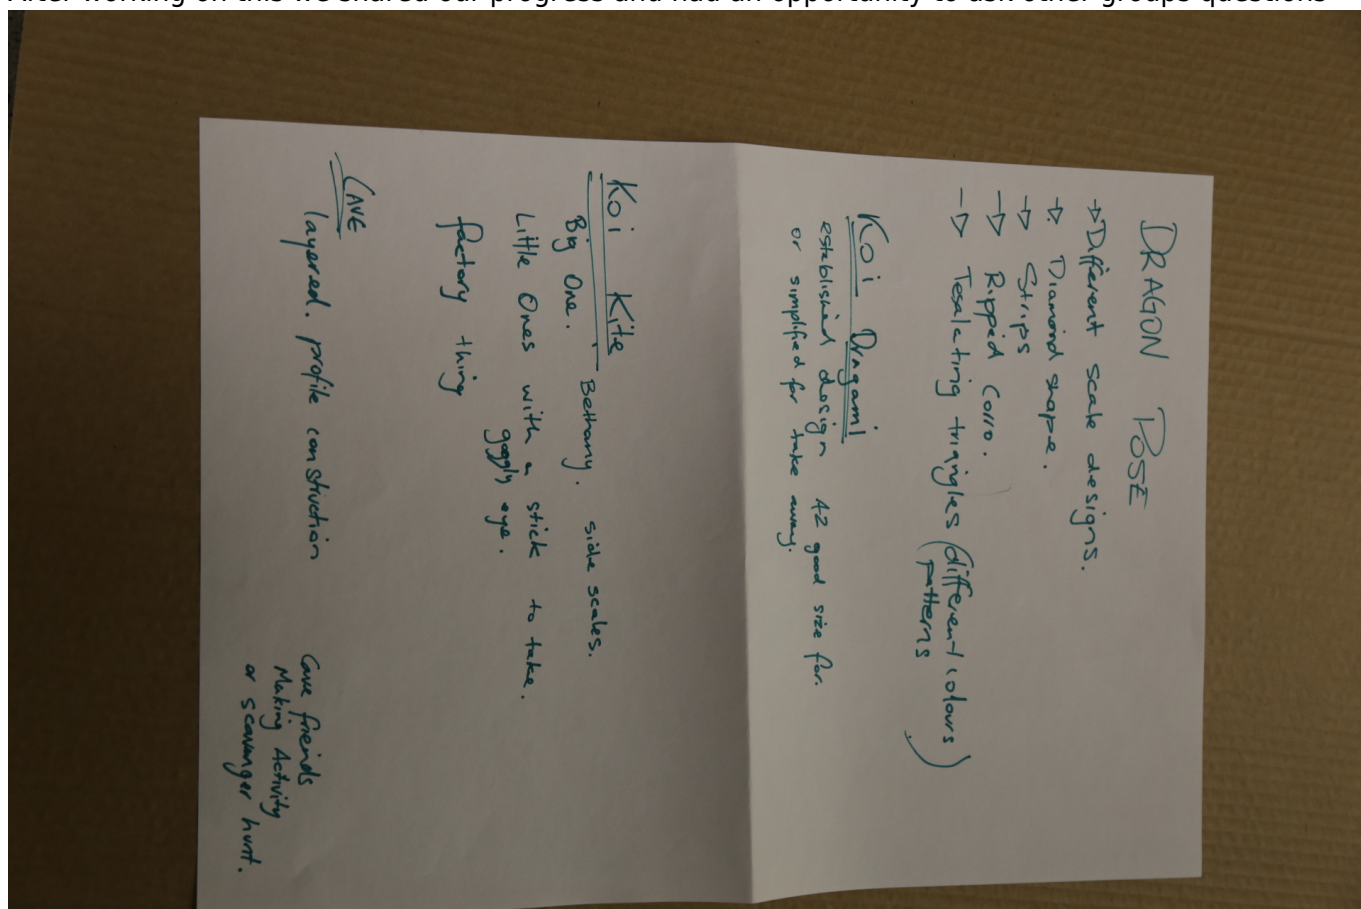 After working on this we shared our progress and had an opportunity to ask other groups questions
DRAGON POSE
→ Different scale designs.
→ Diamond shape.
→ Strips
→ Ripped Corro.
→ Tesalating triangles (different colours)
patterns
Koi Oragami
established design A2 good size for.
or simplified for take away.
Koi Kite
Big One. Bethany. side scales.
Little Ones with a stick to take.
goggly eye.
factory thing
CAVE
layered. profile constivction
Cave freinds
Making Activity
or scavanger hunt.